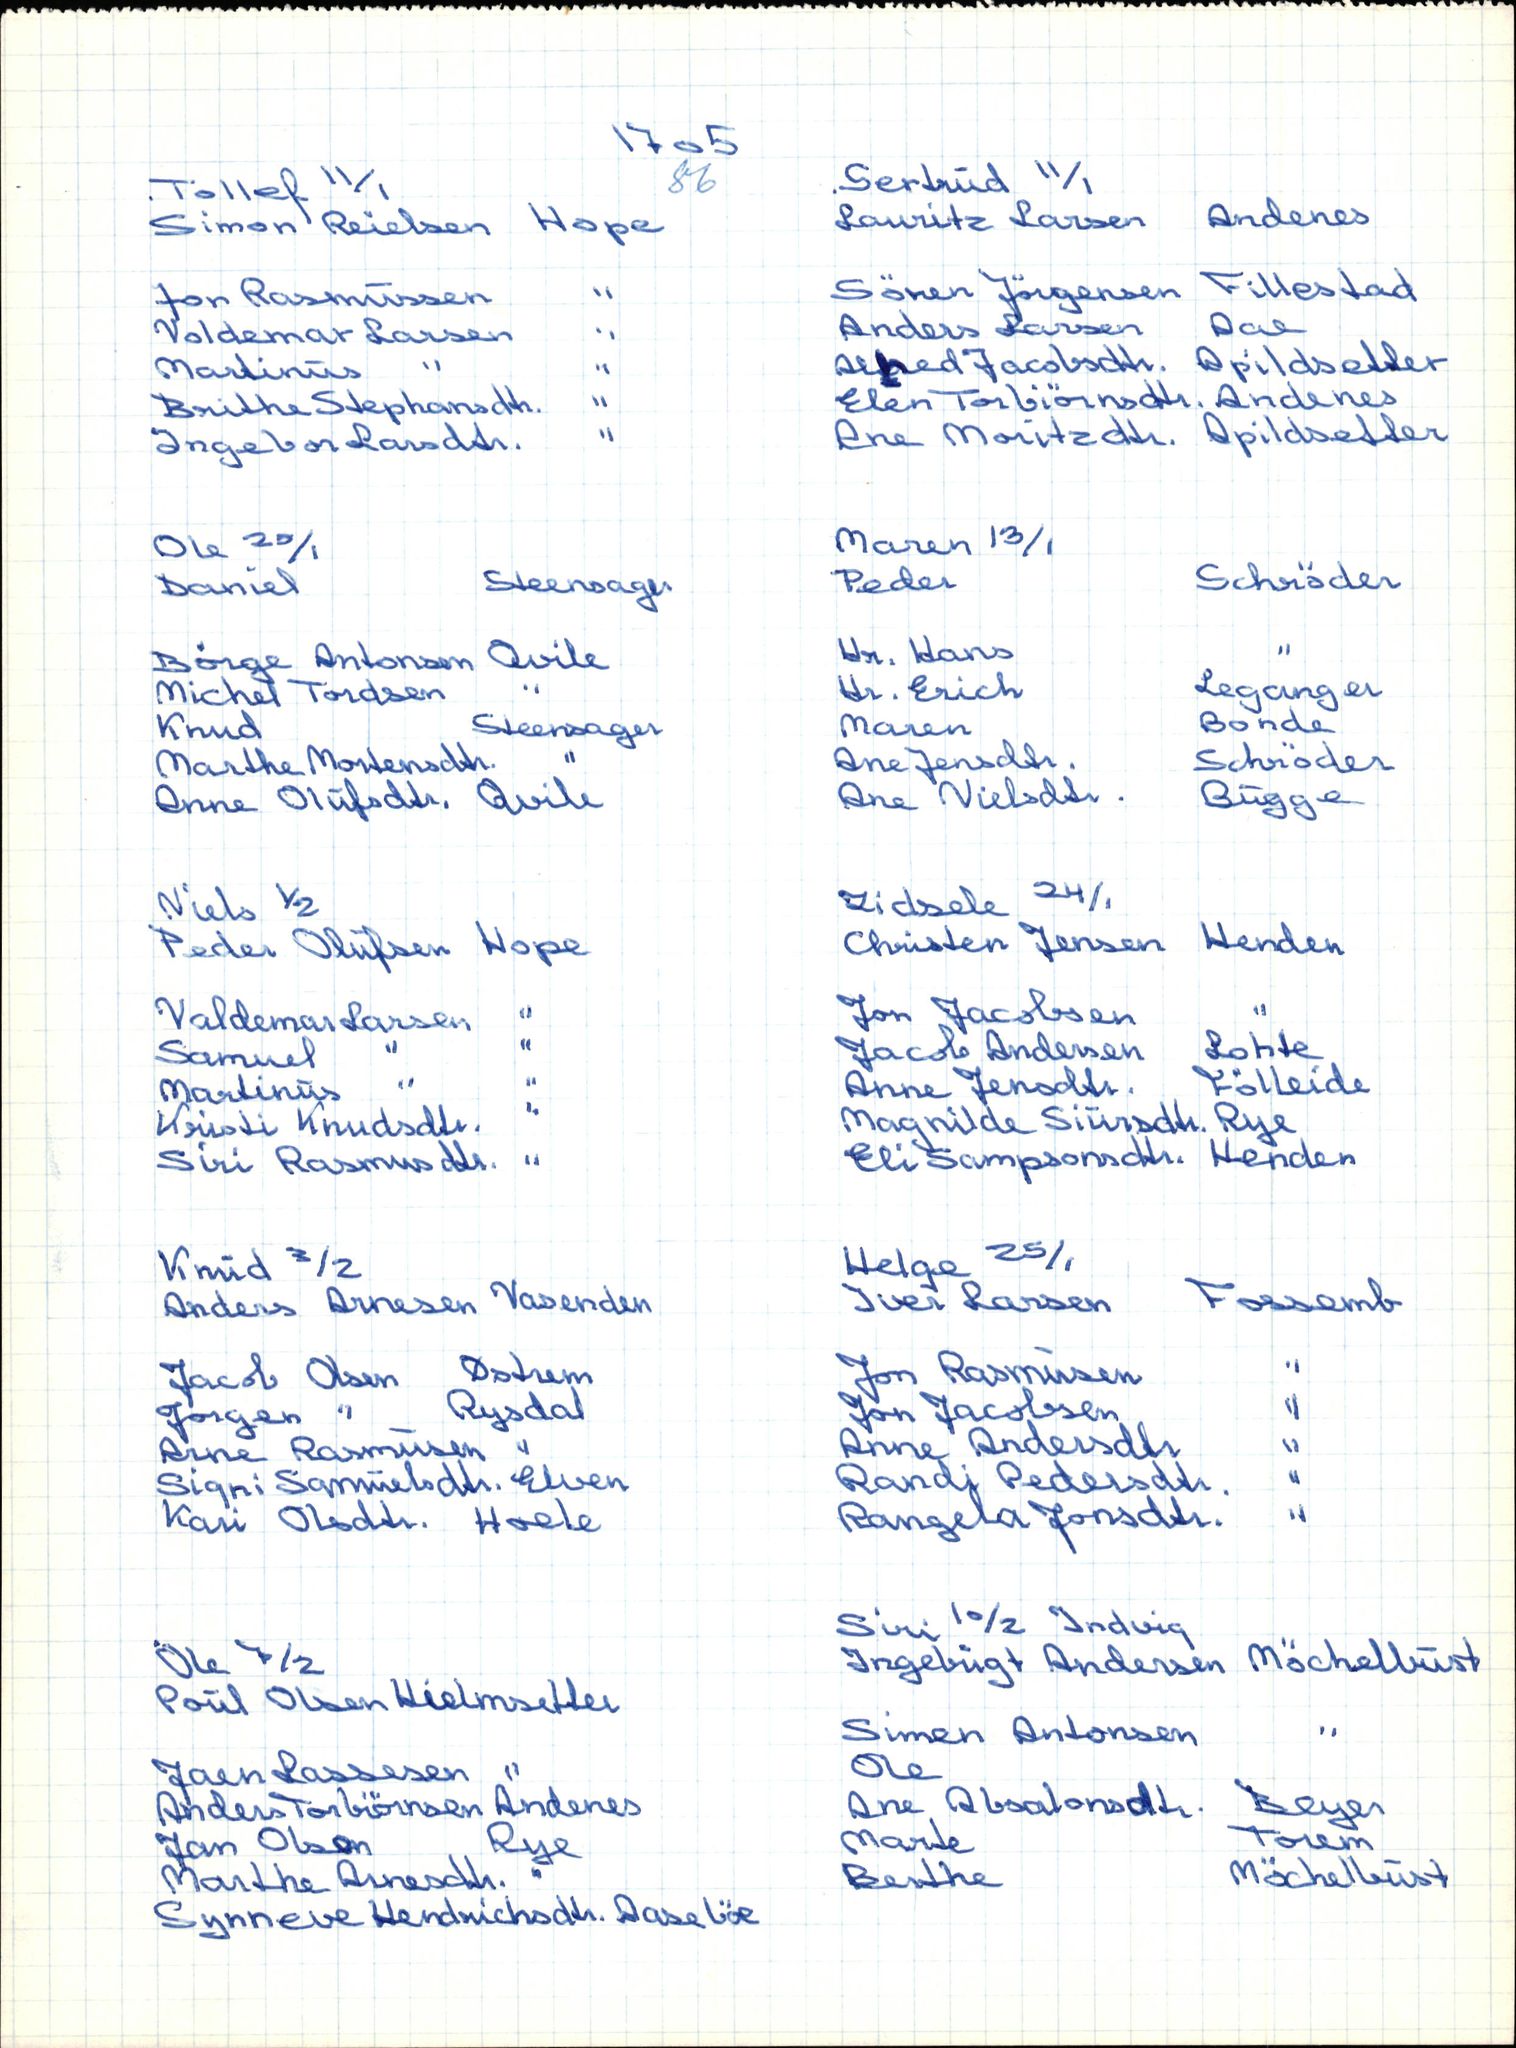 1705
86
Tollef 11/1
Simon Reielsen Hope
Jon Rasmüssen "
Voldemar Larsen "
Martinüs " "
Brithe Stephansdtr. "
Ingebor Larsdtr. "
Ole 20/1
Daniel Steensager
Börge Antonsen Qvile
Michel Tordsen "
Knud Steensager
Marthe Mortensdtr. "
Anne Olüfsdtr. Qvile
Niels 1/2
Peder Olüfsen Hope
Valdemar Larsen "
Samuel " "
Martinüs " "
Kristi Knudsdtr. "
Siri Rasmusdtr. "
Knüd 3/2
Anders Arnesen Vasenden
Jacob Olsen Østrem
Jörgen " Rysdal
Arne Rasmüsen "
Signi Samüelsdtr. Elven
Kari Olsdtr. Hoele
Ole 7/2
Poül Olsen Hielmsetter
Jaen Lassesen "
Anders Torbiörnsen Andenes
Jan Olsen Rye
Marthe Arnesdtr. "
Synneve Hendrichsdtr. Aaseböe
Gertrüd 11/1
Lauritz Larsen Andenes
Sören Jörgensen Fillestad
Anders Larsen Aae
Jacobsdtr. Apildsetter
Elen Torbiörnsdtr. Andenes
Ane Moritzdtr. Apildsetter
Maren 13/1
Peder Schröder
Hr. Hans "
Hr. Erich Leganger
Maren Bonde
Ane Jensdtr. Schröder
Ane Nielsdtr. Bügge
Zidsele 24/1
Christen Jensen Henden
Jon Jacobsen "
Jacob Andersen Lothe
Anne Jensdtr. Fölleide
Magnilde Siürsdtr. Rye
Eli Sampsonsdtr. Henden
Helge 25/1
Iver Larsen Fossemb
Jon Rasmüsen "
Jon Jacobsen "
Anne Andersdtr "
Randi Pedersdtr. "
Rangela Jonsdtr. "
Siri 10/2 Indvig
Ingebrigt Andersen Möchelbüst
Simen Antonsen "
Ole
Ane Absalonsdtr. Beyer
Marte Torem
Berthe Möchelbüst